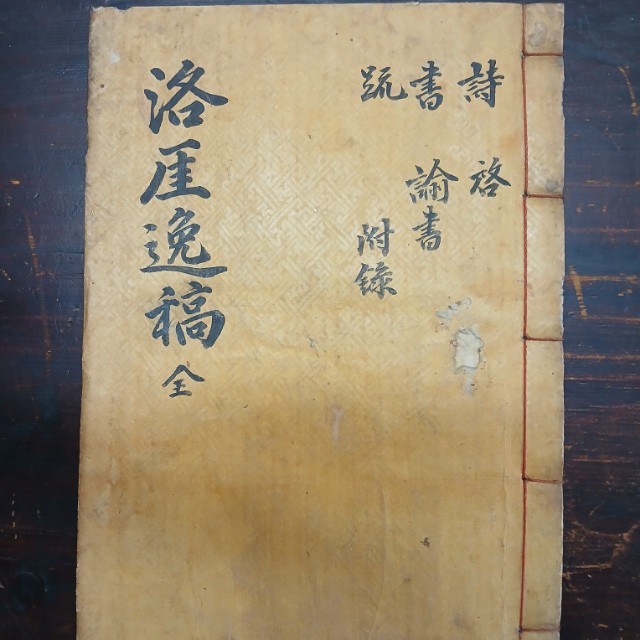 詩 啓
書 論書
疏 附錄
洛厓逸稿 全